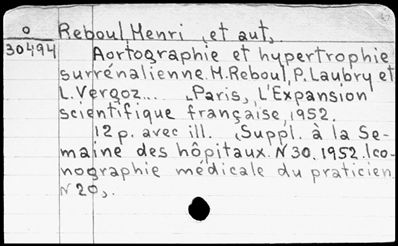 o
30494
Reboul, Henri, et aut,
Aortographie et hypertrophie
surrénalienne. M. Reboul, P. Laubry et
L. Vergoz... Paris, L'Expansion
scientifique française, 1952.
12 p. avec ill. (Suppl. à la Se-
maine des hôpitaux. N 30. 1952. Ico-
nographie médicale du praticien
N 20).